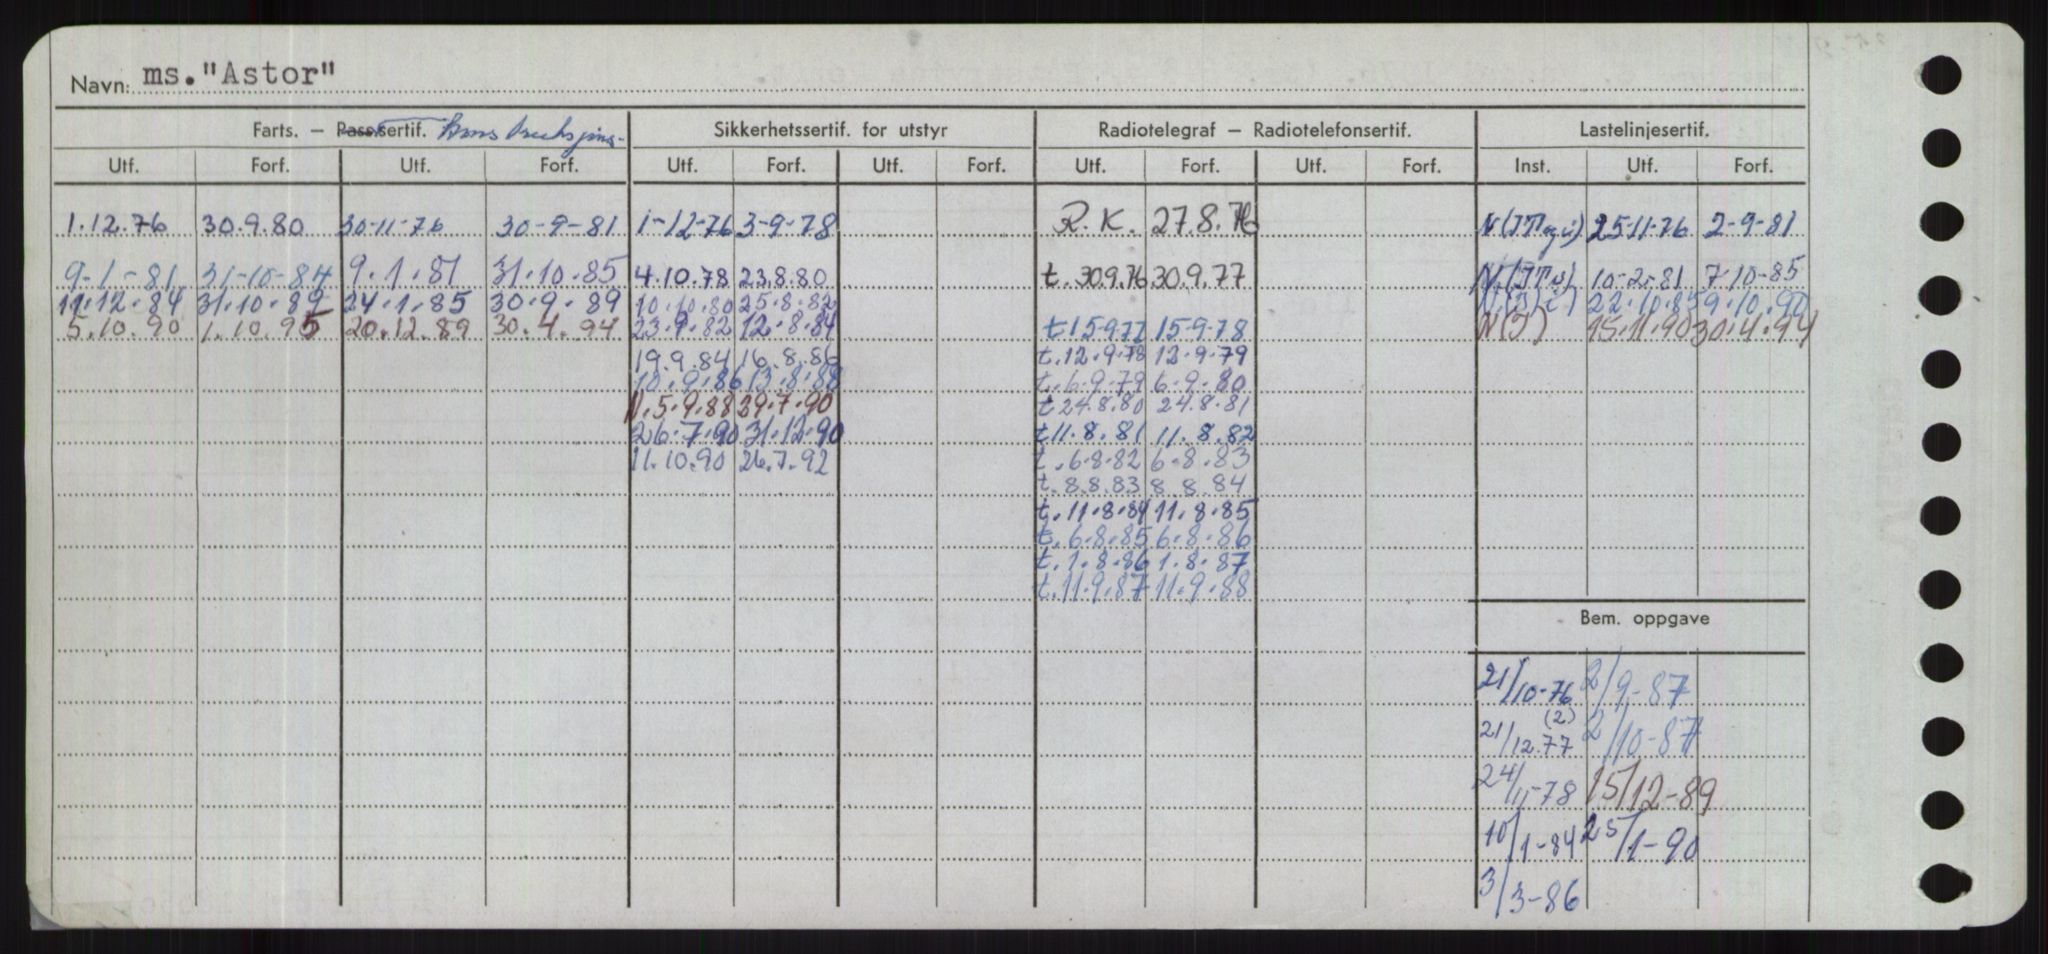 Navn: ms. "Astor"
Farts. – Passsertif. Sikkerhetssertif. for utstyr Radiotelegraf – Radiotelefonsertif. Lastelinjesertif.
Utf. Forf. Utf. Forf. Utf. Forf. Utf. Forf. Utf. Forf. Utf. Forf. Inst. Utf. Forf.
1.12.76 30.9.80 30-11-76 30-9-81 1-12-76 3-9-78 R.K. 27.8.76 25-11-76 2-9-81
9-1-81 31-10-84 9.1.81 31.10.85 4.10.78 23.8.80 t.30.9.76 30.9.77 10-2-81 7-10-85
11.12.84 31.10.89 24.1.85 30.9.89 10.10.80 25.8.82 22.10.85 9.10.90
5.10.90 1.10.95 20.12.89 30.4.94 23.9.82 12.8.84 t15-9-77 15-9-78 N(I) 15.11.90 30.4.94
19.9.84 16.8.86 t.12.9.78 12.9.79
10.9.86 13.8.88 t.6.9.79 6.9.80
N.5.9.88 29.7.90 t24.8.80 24.8.81
26.7.90 31.12.90 t11.8.81 11.8.82
11.10.90 26.7.92 t.6.8.82 6.8.83
t.8.8.83 8.8.84
t.11.8.84 11.8.85
t.6.8.85 6.8.86
t.1.8.86 1.8.87
t.11.9.87 11.9.88
Bem. oppgave
21/10-76 2/9-87
(2)
21/12.77 2/10-87
24/11-78 15/12-89
10/1-84 25/1-90
3/3-86